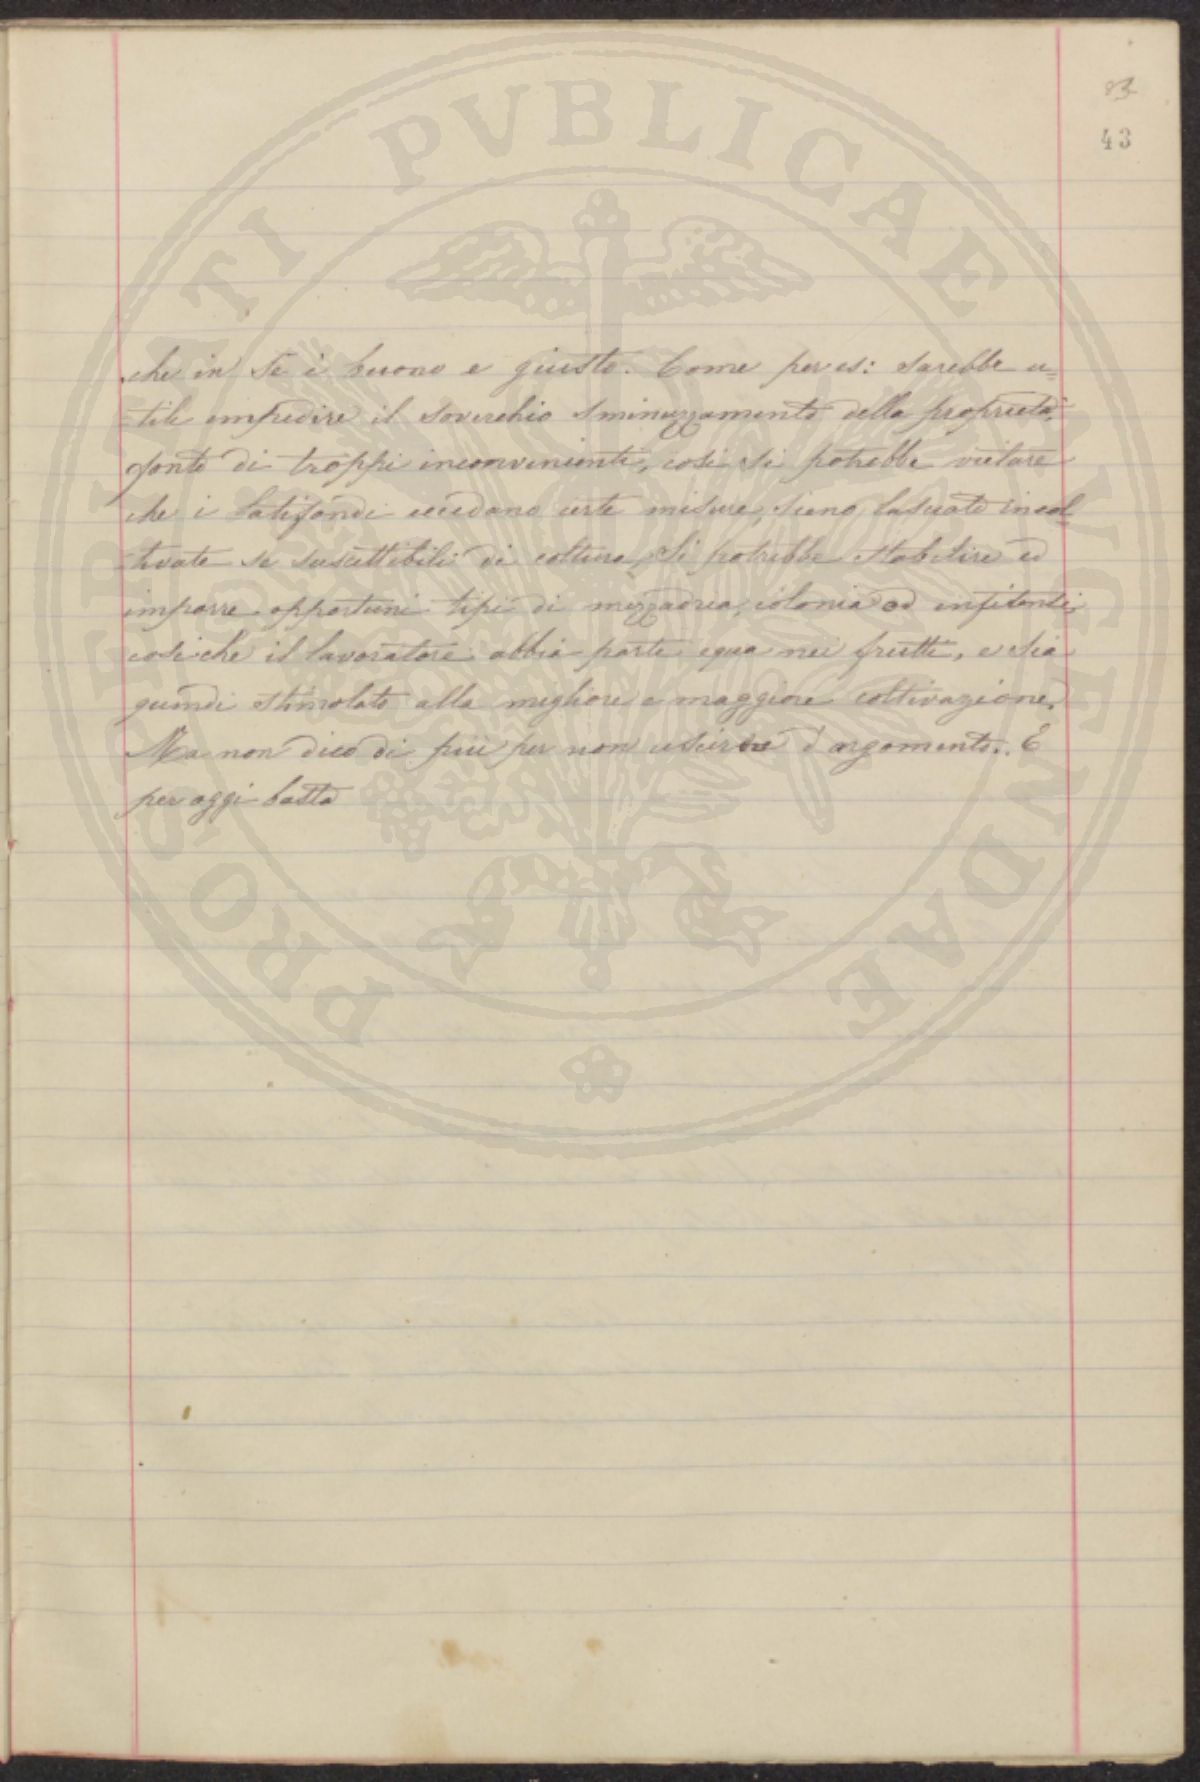 PROSPERITATI PVBLICAE AVGENDAE
83
43
che in se è buono e giusto. Come per es: sarebbe u=
tile impedire il soverchio sminuzzamento della proprietà,
fonte di troppi inconvenienti, così si potrebbe vietare
che i latifondi eccedano certe misure, sieno lasciati incol=
tivate se suscettibili di coltura, Si potrebbe stabilire ed
imporre opportuni tipi di mezzadria, colonia od enfiteusi,
cosicchè il lavoratore abbia parte equa nei frutti, e sia
quindi stimolato alla migliore e maggiore coltivazione.
Ma non dico di più per non uscire d'argomento.. E
per oggi basta